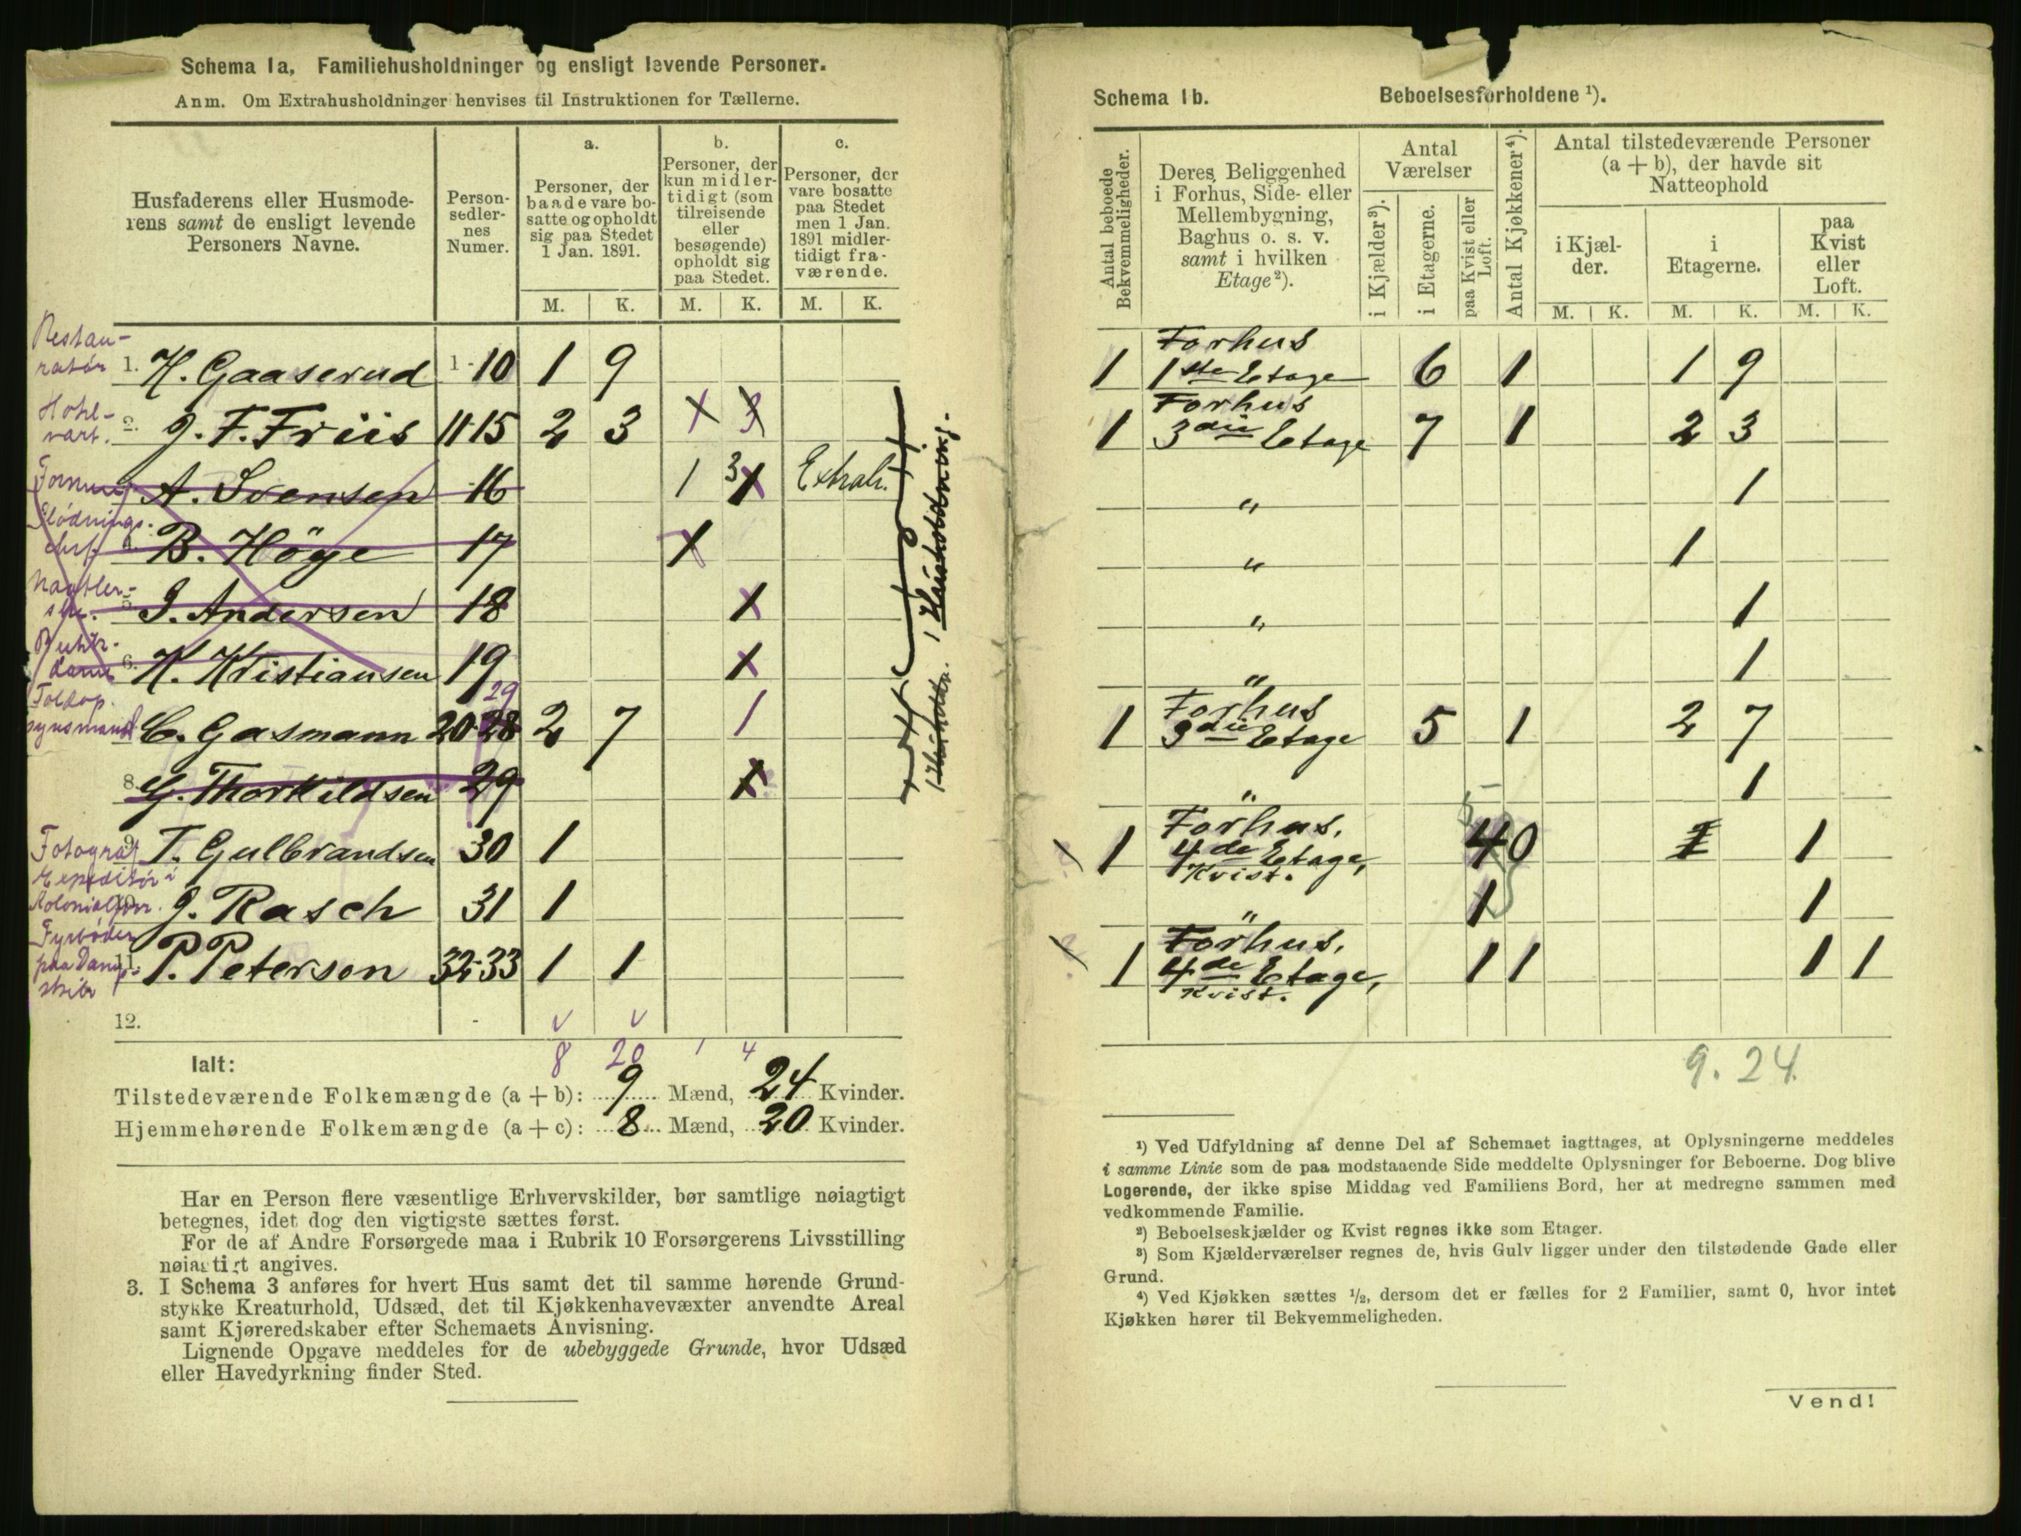 Schema 1a, Familiehusholdninger og ensligt levende Personer.
Anm. Om Extrahusholdninger henvises til Instruktionen for Tællerne.
Husfaderens eller Husmoderens samt de ensligt levende Personers Navne.
Personsedlernes Numer.
a.
Personer, der baade vare bosatte og opholdt sig paa Stedet 1 Jan. 1891.
b.
Personer, der kun midlertidigt (som tilreisende eller besøgende) opholdt sig paa Stedet.
c.
Personer, der vare bosatte paa Stedet men 1 Jan. 1891 midlertidigt fraværende.
M. K. M. K. M. K.
Restauratør 1. H. Gaaserud 1-10 1 9
Hotelvært. 2. J. F. Friis 11-15 2 3 1 3
A. Svensen 16 1 3 1 Extrah.
B. Höye 17 1
J. Andersen 18 1
6. K. Kristiansen 19 1
Toldopsynsmand C. Gasmann 20-28 29 2 7 1
8. G. Thorkildsen 29 1
Fotograf 9. T. Gulbrandsen 30 1
Expeditør i Kolonialforr. J. Rasch 31 1
Fyrbøder paa Dampskib 11. P. Peterson 32-33 1 1
12.
v v
Ialt: 8 20 1 4
Tilstedeværende Folkemængde (a + b): 9 Mænd, 24 Kvinder.
Hjemmehørende Folkemængde (a + c): 8 Mænd, 20 Kvinder.
Har en Person flere væsentlige Erhvervskilder, bør samtlige nøiagtigt
betegnes, idet dog den vigtigste sættes først.
For de af Andre Forsørgede maa i Rubrik 10 Forsørgerens Livsstilling
nøiagtigt angives.
3. I Schema 3 anføres for hvert Hus samt det til samme hørende Grund-
stykke Kreaturhold, Udsæd, det til Kjøkkenhavevæxter anvendte Areal
samt Kjøreredskaber efter Schemaets Anvisning.
Lignende Opgave meddeles for de ubebyggede Grunde, hvor Udsæd
eller Havedyrkning finder Sted.
Schema 1b. Beboelsesforholdene ¹).
Antal beboede Bekvemmeligheder.
Deres Beliggenhed i Forhus, Side- eller Mellembygning, Baghus o. s. v. samt i hvilken Etage ²).
Antal Værelser
i Kjælder ³).
i Etagerne.
paa Kvist eller Loft.
Antal Kjøkkener ⁴).
Antal tilstedeværende Personer (a + b), der havde sit Natteophold
i Kjælder.
i Etagerne.
paa Kvist eller Loft.
M. K. M. K. M. K.
1 Forhus 1ste Etage 6 1 1 9
1 Forhus 3die Etage 7 1 2 3
" 1
" 1
" 1
" 1
1 Forhus 3die Etage 5 1 2 7
" 1
1 Forhus, 4de Etage, Kvist. 4 0 1 1
" 1 1
1 Forhus, 4de Etage, Kvist. 1 1 1 1
9. 24.
¹) Ved Udfyldning af denne Del af Schemaet iagttages, at Oplysningerne meddeles
i samme Linie som de paa modstaaende Side meddelte Oplysninger for Beboerne. Dog blive
Logerende, der ikke spise Middag ved Familiens Bord, her at medregne sammen med
vedkommende Familie.
²) Beboelseskjælder og Kvist regnes ikke som Etager.
³) Som Kjælderværelser regnes de, hvis Gulv ligger under den tilstødende Gade eller
Grund.
⁴) Ved Kjøkken sættes ½, dersom det er fælles for 2 Familier, samt 0, hvor intet
Kjøkken hører til Bekvemmeligheden.
Vend!